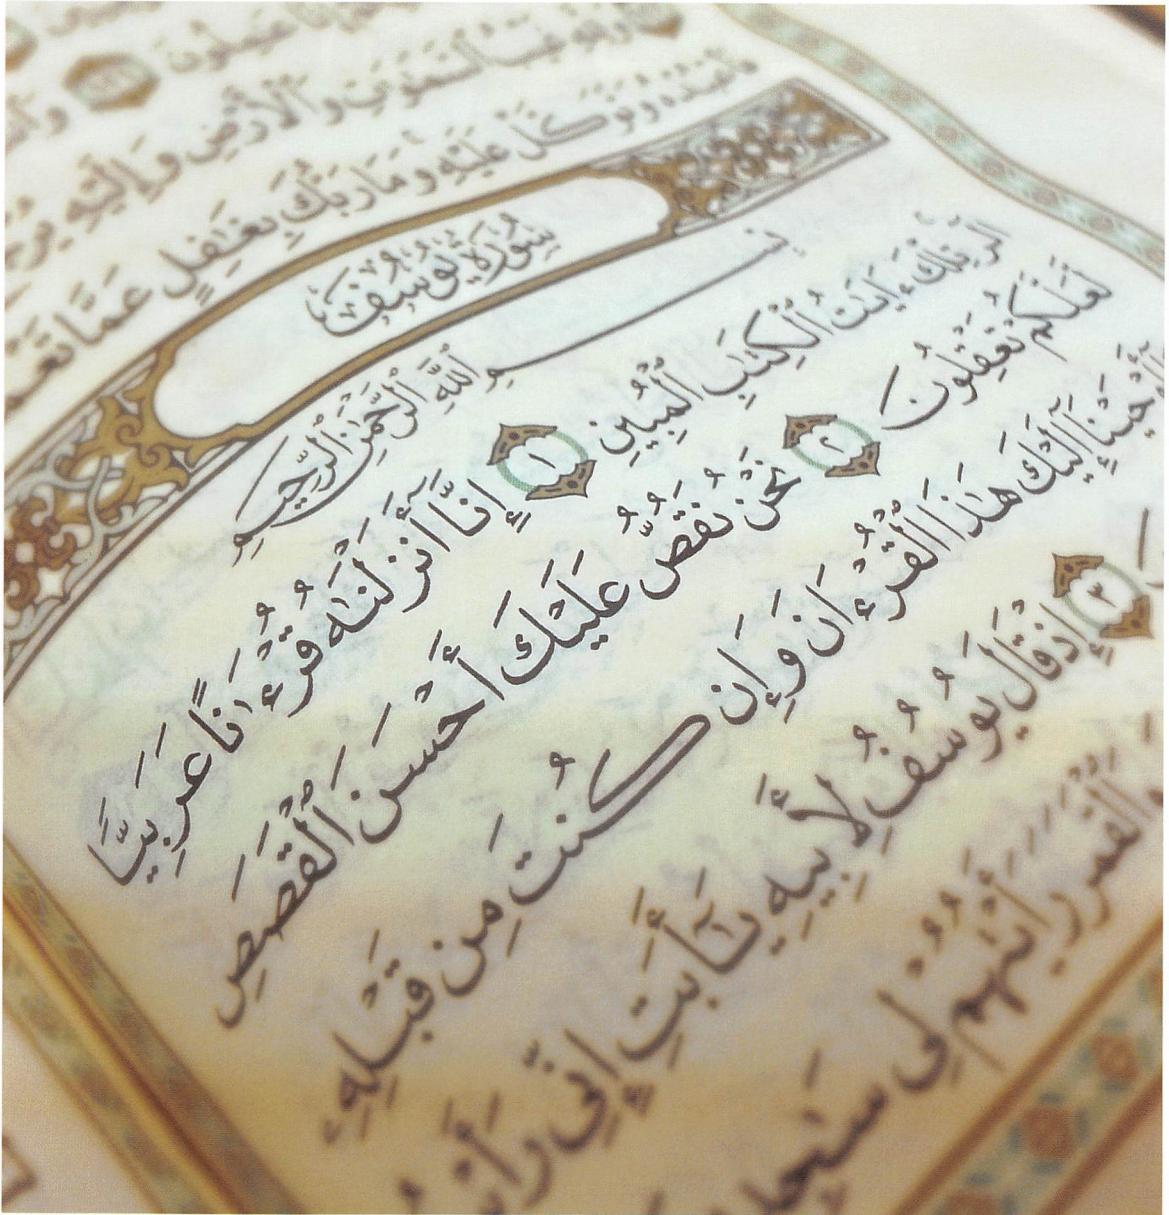 وَلِلَّهِ غَيْبُ ٱلسَّمَٰوَٰتِ وَٱلْأَرْضِ وَإِلَيْهِ
فَٱعْبُدْهُ وَتَوَكَّلْ عَلَيْهِ وَمَا رَبُّكَ بِغَٰفِلٍ عَمَّا
سُورَةُ يُوسُفَ
بِسْمِ ٱللَّهِ ٱلرَّحْمَٰنِ ٱلرَّحِيمِ
الٓر تِلْكَ ءَايَٰتُ ٱلْكِتَٰبِ ٱلْمُبِينِ ١ إِنَّآ أَنزَلْنَٰهُ قُرْءَٰنًا عَرَبِيًّا
لَّعَلَّكُمْ تَعْقِلُونَ ٢ نَحْنُ نَقُصُّ عَلَيْكَ أَحْسَنَ ٱلْقَصَصِ
أَوْحَيْنَآ إِلَيْكَ هَٰذَا ٱلْقُرْءَانَ وَإِن كُنتَ مِن قَبْلِهِۦ
٣ إِذْ قَالَ يُوسُفُ لِأَبِيهِ يَٰٓأَبَتِ إِنِّى
وَٱلْقَمَرَ رَأَيْتُهُمْ لِى